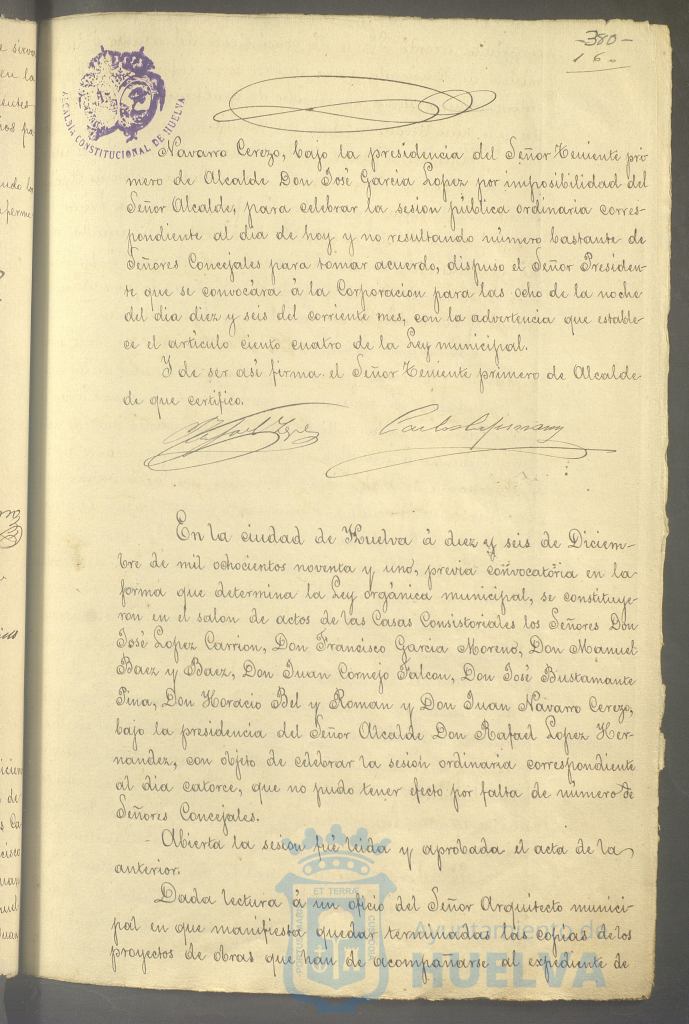 -380-
160
ALCALDÍA CONSTITUCIONAL DE HUELVA
Navarro Cerezo, bajo la presidencia del Señor Teniente pri-
mero de Alcalde Don José Garcia Lopez por imposibilidad del
Señor Alcalde, para celebrar la sesion pública ordinaria corres-
pondiente al dia de hoy y no resultando número bastante de
Señores Concejales para tomar acuerdo, dispuso el Señor Presiden-
te que se convocára á la Corporacion para las ocho de la noche
del dia diez y seis del corriente mes, con la advertencia que estable-
ce el artículo ciento cuatro de la Ley municipal.
Y de ser asi firma el Señor Teniente primero de Alcalde
de que certifico.
En la ciudad de Huelva á diez y seis de Diciem-
bre de mil ochocientos noventa y uno, previa convocatoria en la
forma que determina la Ley orgánica municipal, se constituye-
ron en el salon de actos de las Casas Consistoriales los Señores Don
José Lopez Carrion, Don Francisco Garcia Moreno, Don Manuel
Baez y Baez, Don Juan Cornejo Falcon, Don José Bustamante
Pina, Don Horacio Bel y Roman y Don Juan Navarro Cerezo,
bajo la presidencia del Señor Alcalde Don Rafael Lopez Her-
nandez, con objeto de celebrar la sesión ordinaria correspondiente
al dia catorce, que no pudo tener efecto por falta de número de
Señores Concejales.
Abierta la sesion fué leida y aprobada el acta de la
anterior.
Dada lectura á un oficio del Señor Arquitecto munici-
pal en que manifiesta quedar terminadas las copias de los
proyectos de obras que han de acompañarse al expediente de
Ayuntamiento de
HUELVA